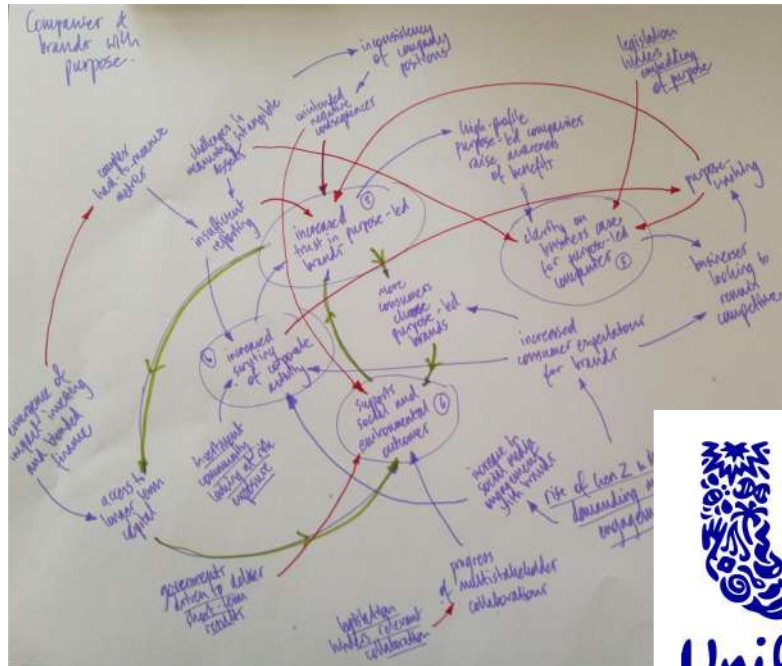 Companies &
brands with
purpose.
inconsistency
of company
positions
legislation
hinders
embedding
of purpose
unintended
negative
consequences
challenges in
measuring intangible
assets
high-profile
purpose-led companies
raise awareness
of benefits
counter
matter
purpose-washing
insufficient
reporting
increased
trust in purpose-led
brands
clarity on
business case
for purpose-led
companies
businesses
looking to
remain
competitive
more
consumers
choose
purpose-led
brands
increased
scrutiny
of corporate
activity
increased
consumer expectations
for brands
emergence of
impact investing
and blended
finance
supports
social and
environmental
outcomes
6
investment
community
looking at risk
exposure
increase in
social media
engagement
with brands
rise of Gen Z
demanding
engagement
access to
longer term
capital
governments
driven to deliver
short-term
results
progress
of multistakeholder
collaborations
legislation
hinders relevant
collaboration